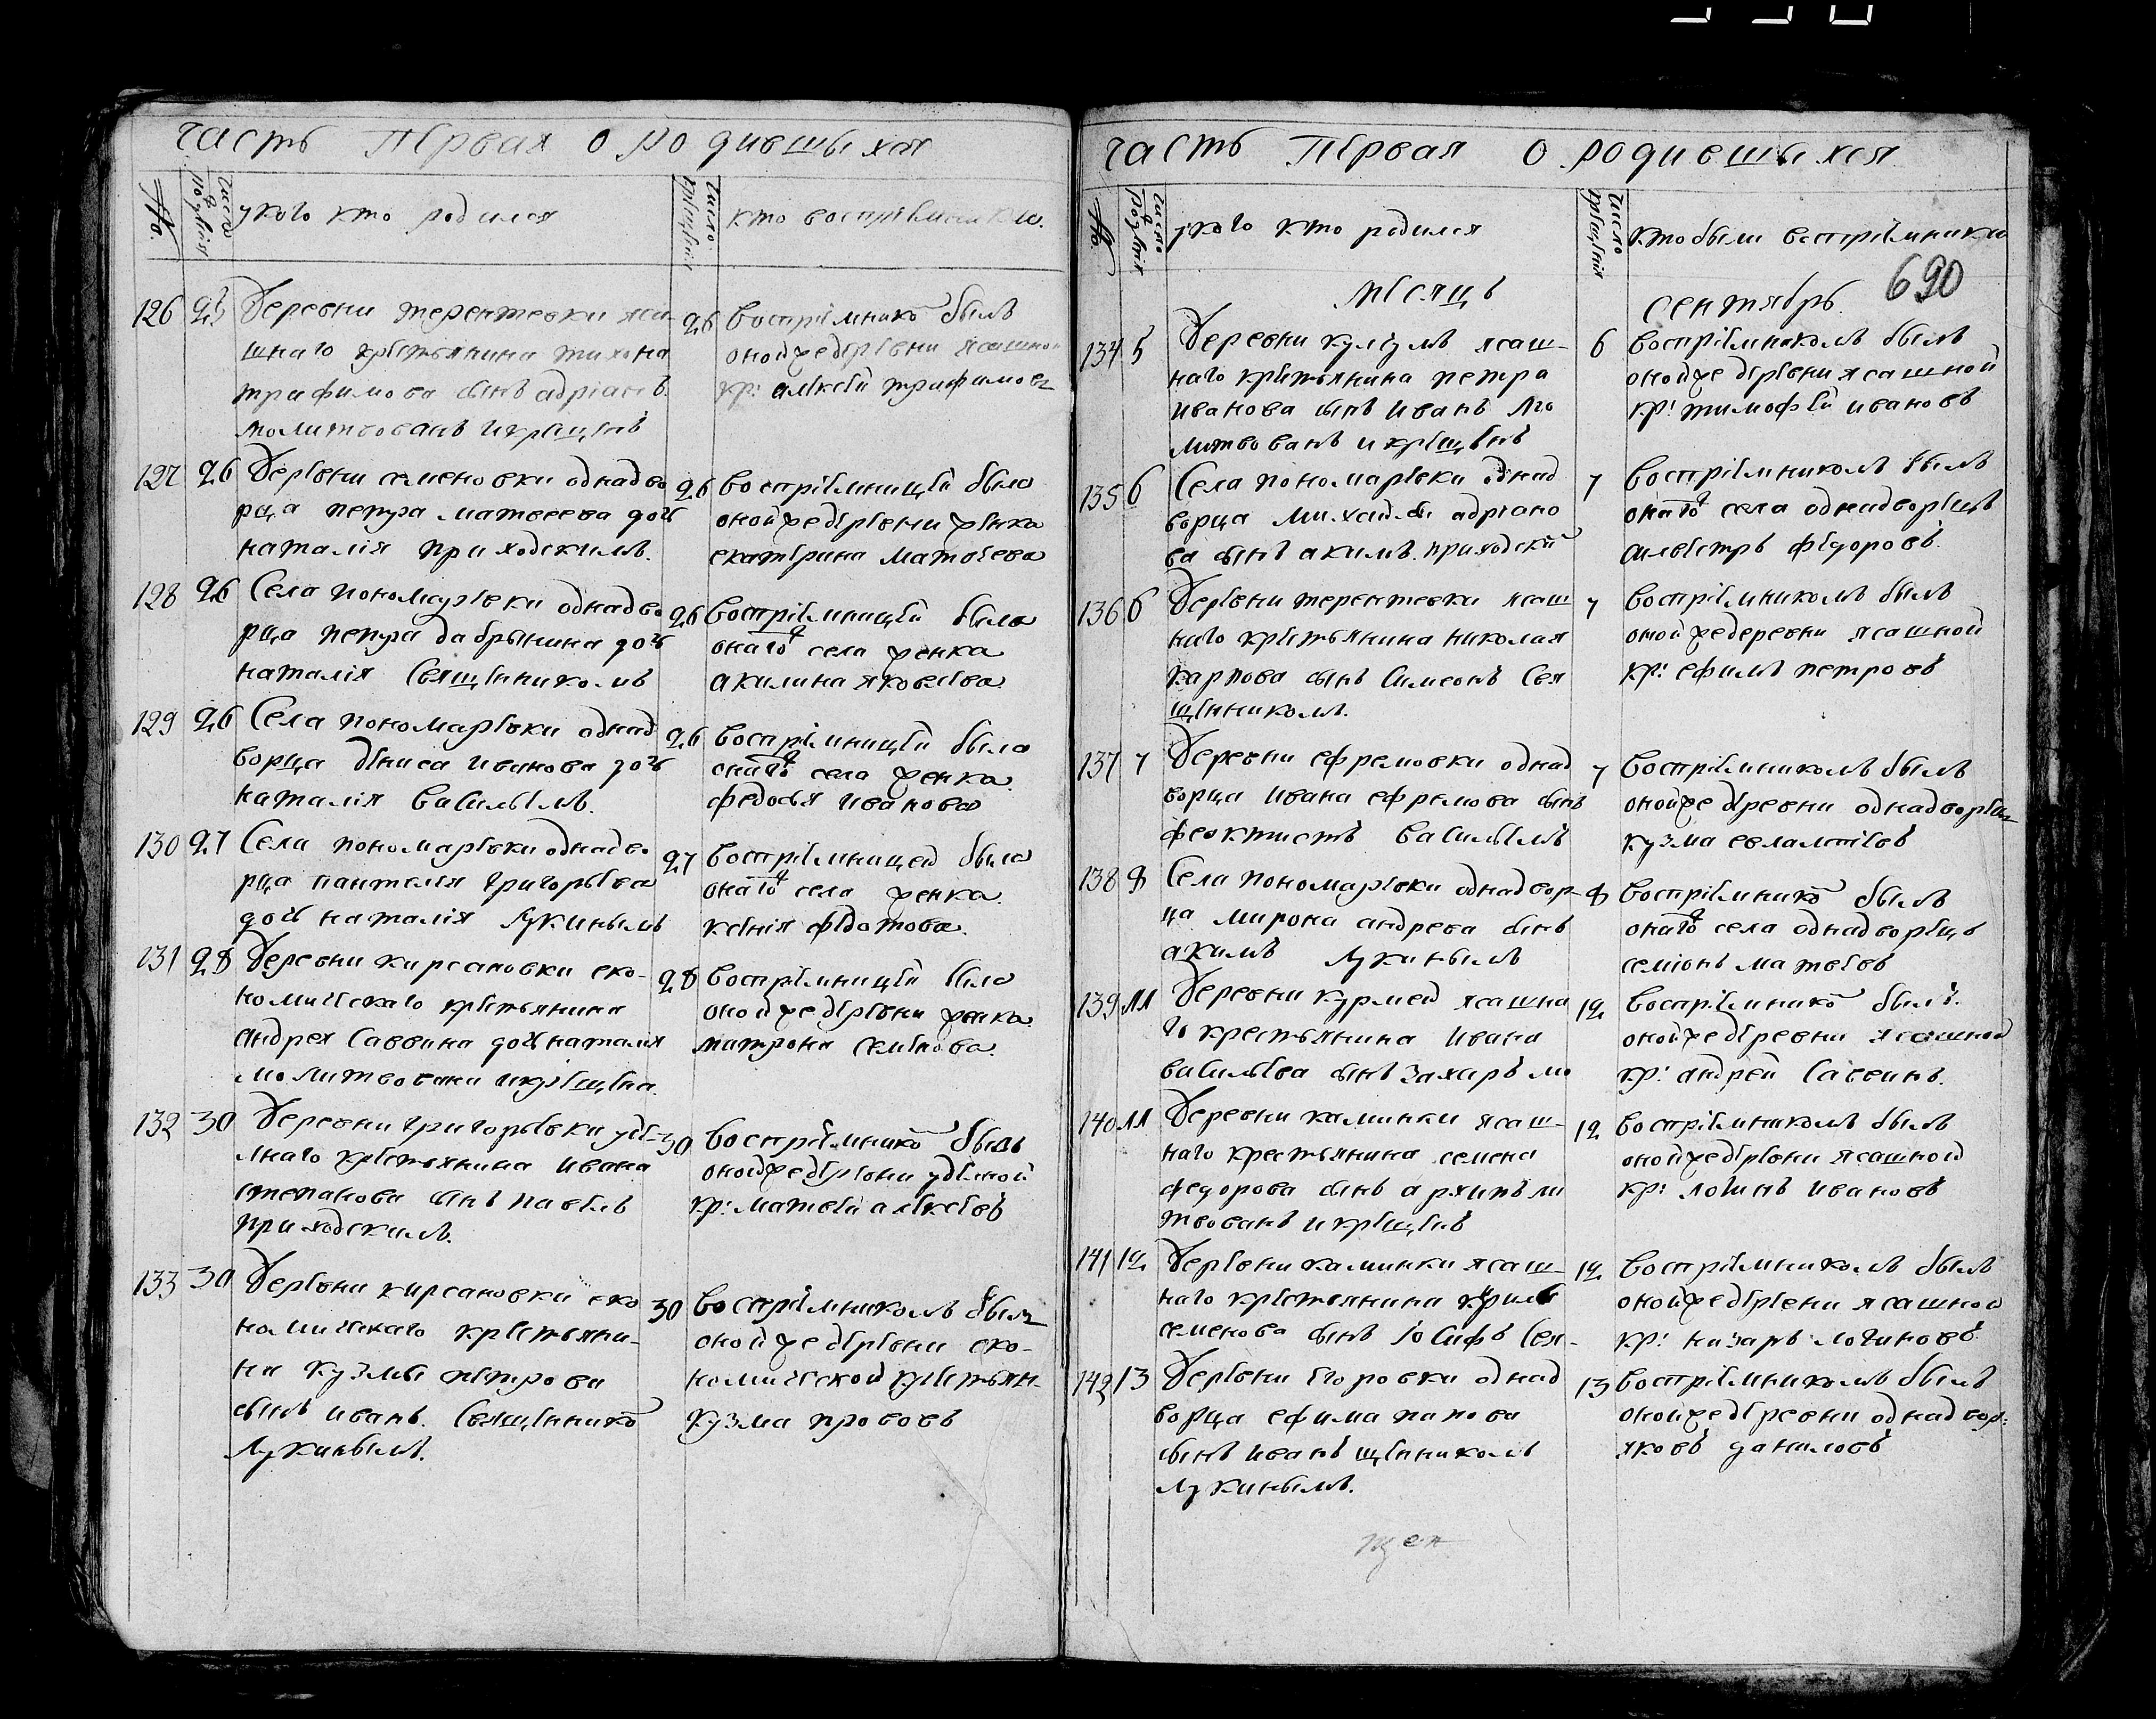 часть Первая о родившыхся
№
число рождѣнія
укого кто родился
число крещенія
кто воспрiемники
126 25 Деревни терентевки яса-
шнаго крестьянина тихона
трафимова сынъ адрiанъ.
молитвованъ и крещенъ
26 воспрiемнико былъ
оной же деревни ясашной
кр: алексей трифимовъ
127 26 Деревни семеновки однадво
рца петра матвеева дочь
наталiя приходскимъ.
26 воспрiемницей была
оной же деревни женка
екатерина матвеева
128 26 Села пономаревки однадво
рца петра дабрынина дочь
наталiя священникомъ
26 воспрiемницей была
онагож села женка
акилина яковлева.
129 26 Села пономаревки однад
ворца дениса иванова дочь
наталiя васильемъ.
26 воспрiемницей была
онагож села женка
федосья иванова
130 27 Села пономаревки однадво
рца пантелея григорьева
дочь наталiя Лукинымъ
27 воспрiемницей была
онагож села женка.
ксенiя федотова.
131 28 Деревни кирсановки еко-
номическаго крестьянина
андрея Саввина дочь наталiя
молитвована и крещена.
28 воспрiемницей была
оной же деревни женка
матрона семенова.
132 30 Деревни григорьевки уде-
лнаго крестьянина ивана
степанова сынъ павелъ
приходскимъ.
30 воспрiемнико былъ
оной же деревни уделной
кр: матвей алексеевъ
133 30 Деревни кирсановки еко
номическаго крестьяни-
на кузмы петрова
сынъ иванъ. Священнико
Лукинымъ.
30 воспрiемникомъ былъ
оной же деревни еко-
номической крестьян-
кузма прововъ
часть Первая о родившыхся
№
число рождѣнія
укого кто родился
число крещенія
кто были воспрiемники
690
месяцъ сентябрь.
134 5 Деревни кулгумъ ясаш-
наго крестьянина петра
иванова сынъ иванъ мо
литвованъ и крещенъ
6 воспрiемникомъ былъ
оной же деревни ясашной
кр: тимофей ивановъ
135 6 Села пономаревки однад
ворца михайлы адрiано
ва сынъ акимъ. приходский
7 воспрiемникомъ былъ
онагож села однадворецъ
силвестръ федоровъ.
136 6 Деревни терентевки ясаш
наго крестьянина николая
карпова сынъ Симеонъ Свя
щенникомъ.
7 воспрiемникомъ былъ
оной же деревни ясашной
кр: ефимъ петровъ
137 7 Деревни ефремовки однад
ворца ивана ефремова сынъ
феоктистъ васильемъ
7 воспрiемникомъ былъ
оной же деревни однадворецъ
кузма евлампiевъ
138 8 Села пономаревки однадвор-
ца мирона андреева сынъ
акимъ Лукинымъ
8 воспрiемнико былъ
онагож села однадворецъ
семiонъ матвеевъ
139 11 Деревни курмей ясашна
го крестьянина ивана
васильева сынъ захаръ мо
12 воспрiемнико былъ.
оной же деревни ясашной
кр: андрей Саввинъ.
140 11 Деревни каминки ясаш-
наго крестьянина семена
федорова сынъ архипъ ли
твованъ и крещенъ
12 воспрiемникомъ былъ
оной же деревни ясашной
кр: логинъ ивановъ
141 12 Деревни каминки ясаш-
наго крестьянина
семенова сынъ Iосифъ Свя-
12 воспрiемникомъ былъ
оной же деревни ясашной
кр: назаръ логиновъ
142 13 Деревни егоровки однад
ворца ефима папова
сынъ иванъ щенникомъ
Лукинымъ.
13 воспрiемникомъ былъ
оной же деревни однадвор:
яковъ даниловъ